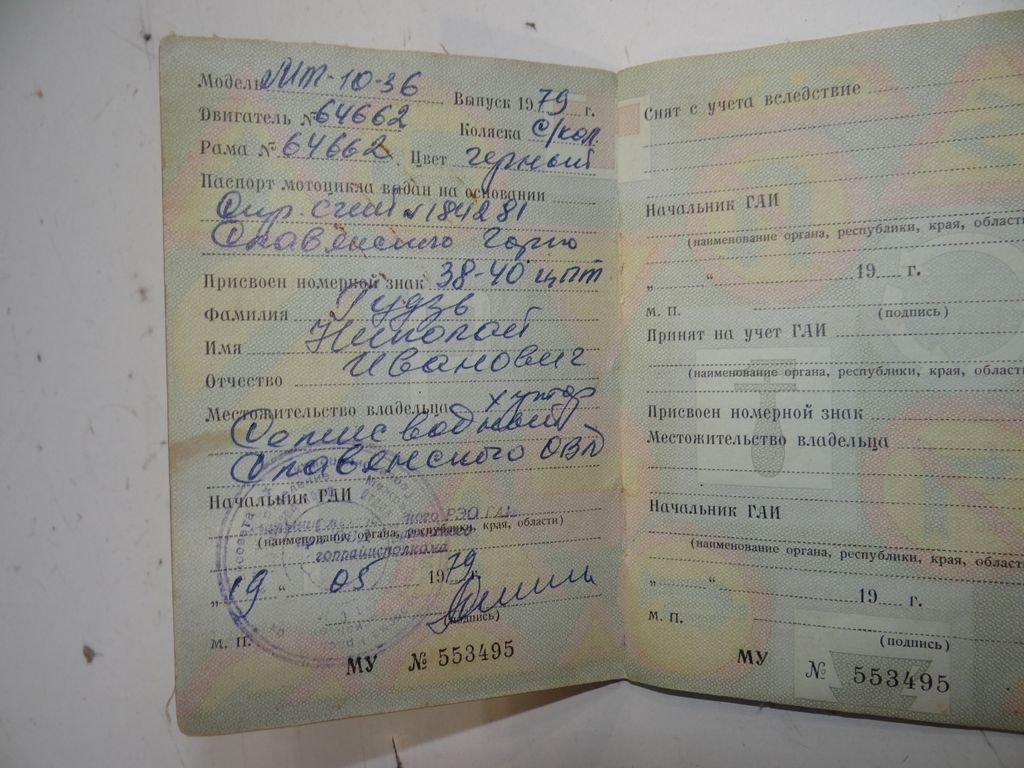 Модель МТ-10-36 Выпуск 1979 г.
Двигатель № 64662 Коляска с/кол.
Рама № 64662 Цвет черный
Паспорт мотоцикла выдан на основании
Спр. счет № 184281
Славянского горпо
Присвоен номерной знак 38-40 цпт
Фамилия Гудзь
Имя Николай
Отчество Иванович
Местожительство владельца хутор
водный
Славянского ОВД
Начальник ГАИ РЭО ГАИ
(наименование органа, республики, края, области)
горрайисполкома
„19“ 05 1979
(подпись)
М. П.
МУ № 553495
Снят с учета вследствие
Начальник ГАИ
(наименование органа, республики, края, области
„ “ 19 г.
М. П. (подпись)
Принят на учет ГАИ
(наименование органа, республики, края, област
Присвоен номерной знак
Местожительство владельца
Начальник ГАИ
(наименование органа, республики, края, област
„ “ 19 г.
М. П. (подпись)
МУ № 553495